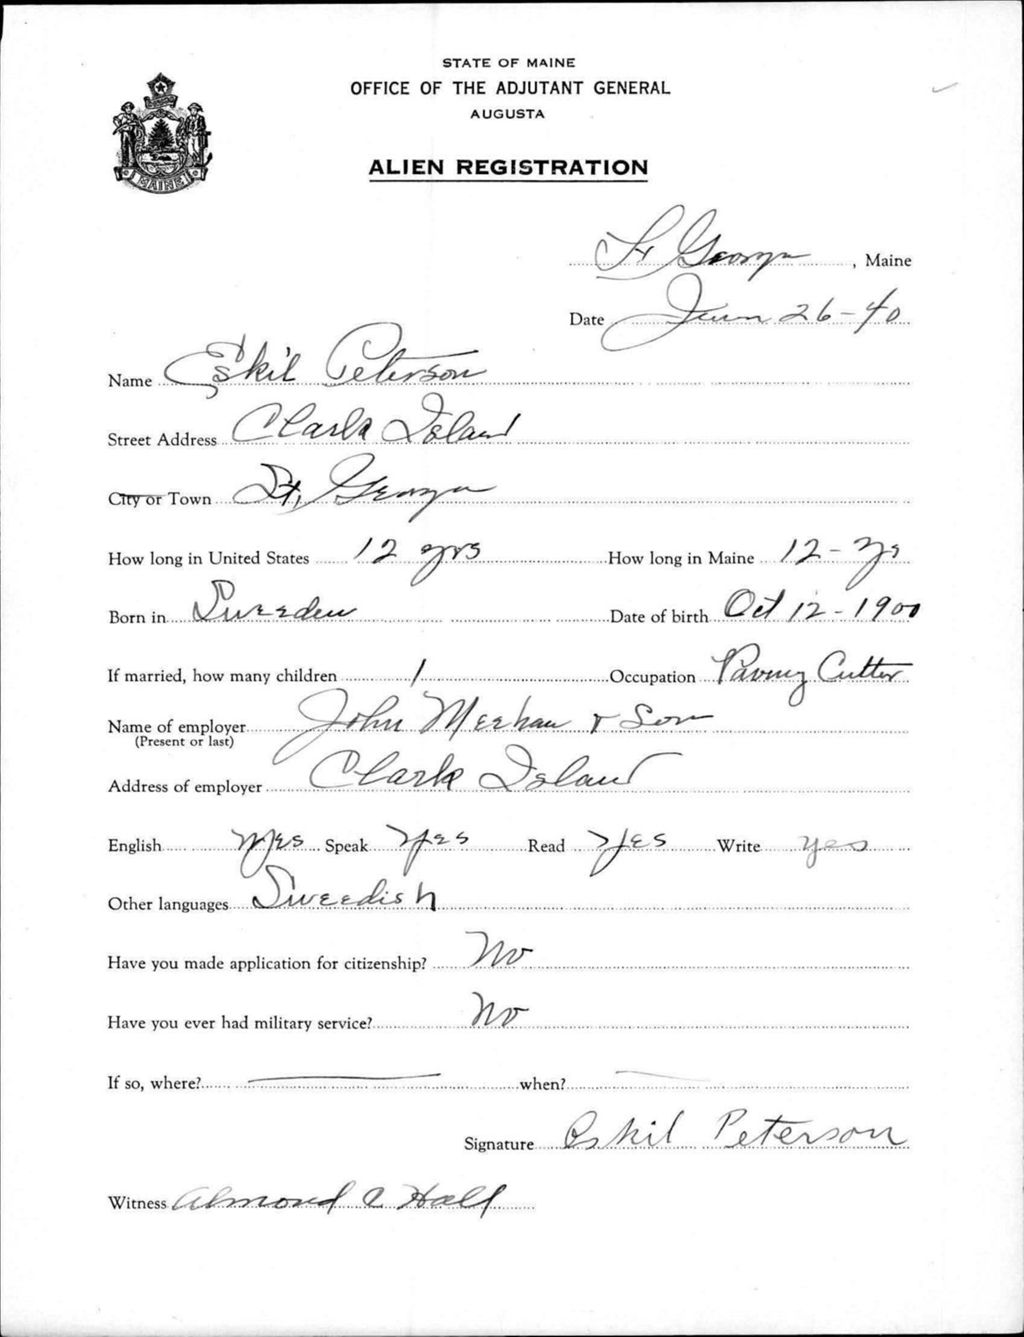 STATE OF MAINE
OFFICE OF THE ADJUTANT GENERAL
AUGUSTA
ALIEN REGISTRATION
MAINE
St George, Maine
Date June 26-40
Name Eskil Peterson
Street Address Clark Island
City or Town St, George
How long in United States 12 yrs How long in Maine 12-Ys
Born in Sweeden Date of birth Oct 12-1900
If married, how many children 1 Occupation Paving Cutter
Name of employer John Meehan & Son
(Present or last)
Address of employer Clark Island
English Yes Speak Yes Read Yes Write yes
Other languages Sweedish
Have you made application for citizenship? No
Have you ever had military service? No
If so, where? when?
Signature Eskil Peterson
Witness Almond C Hall